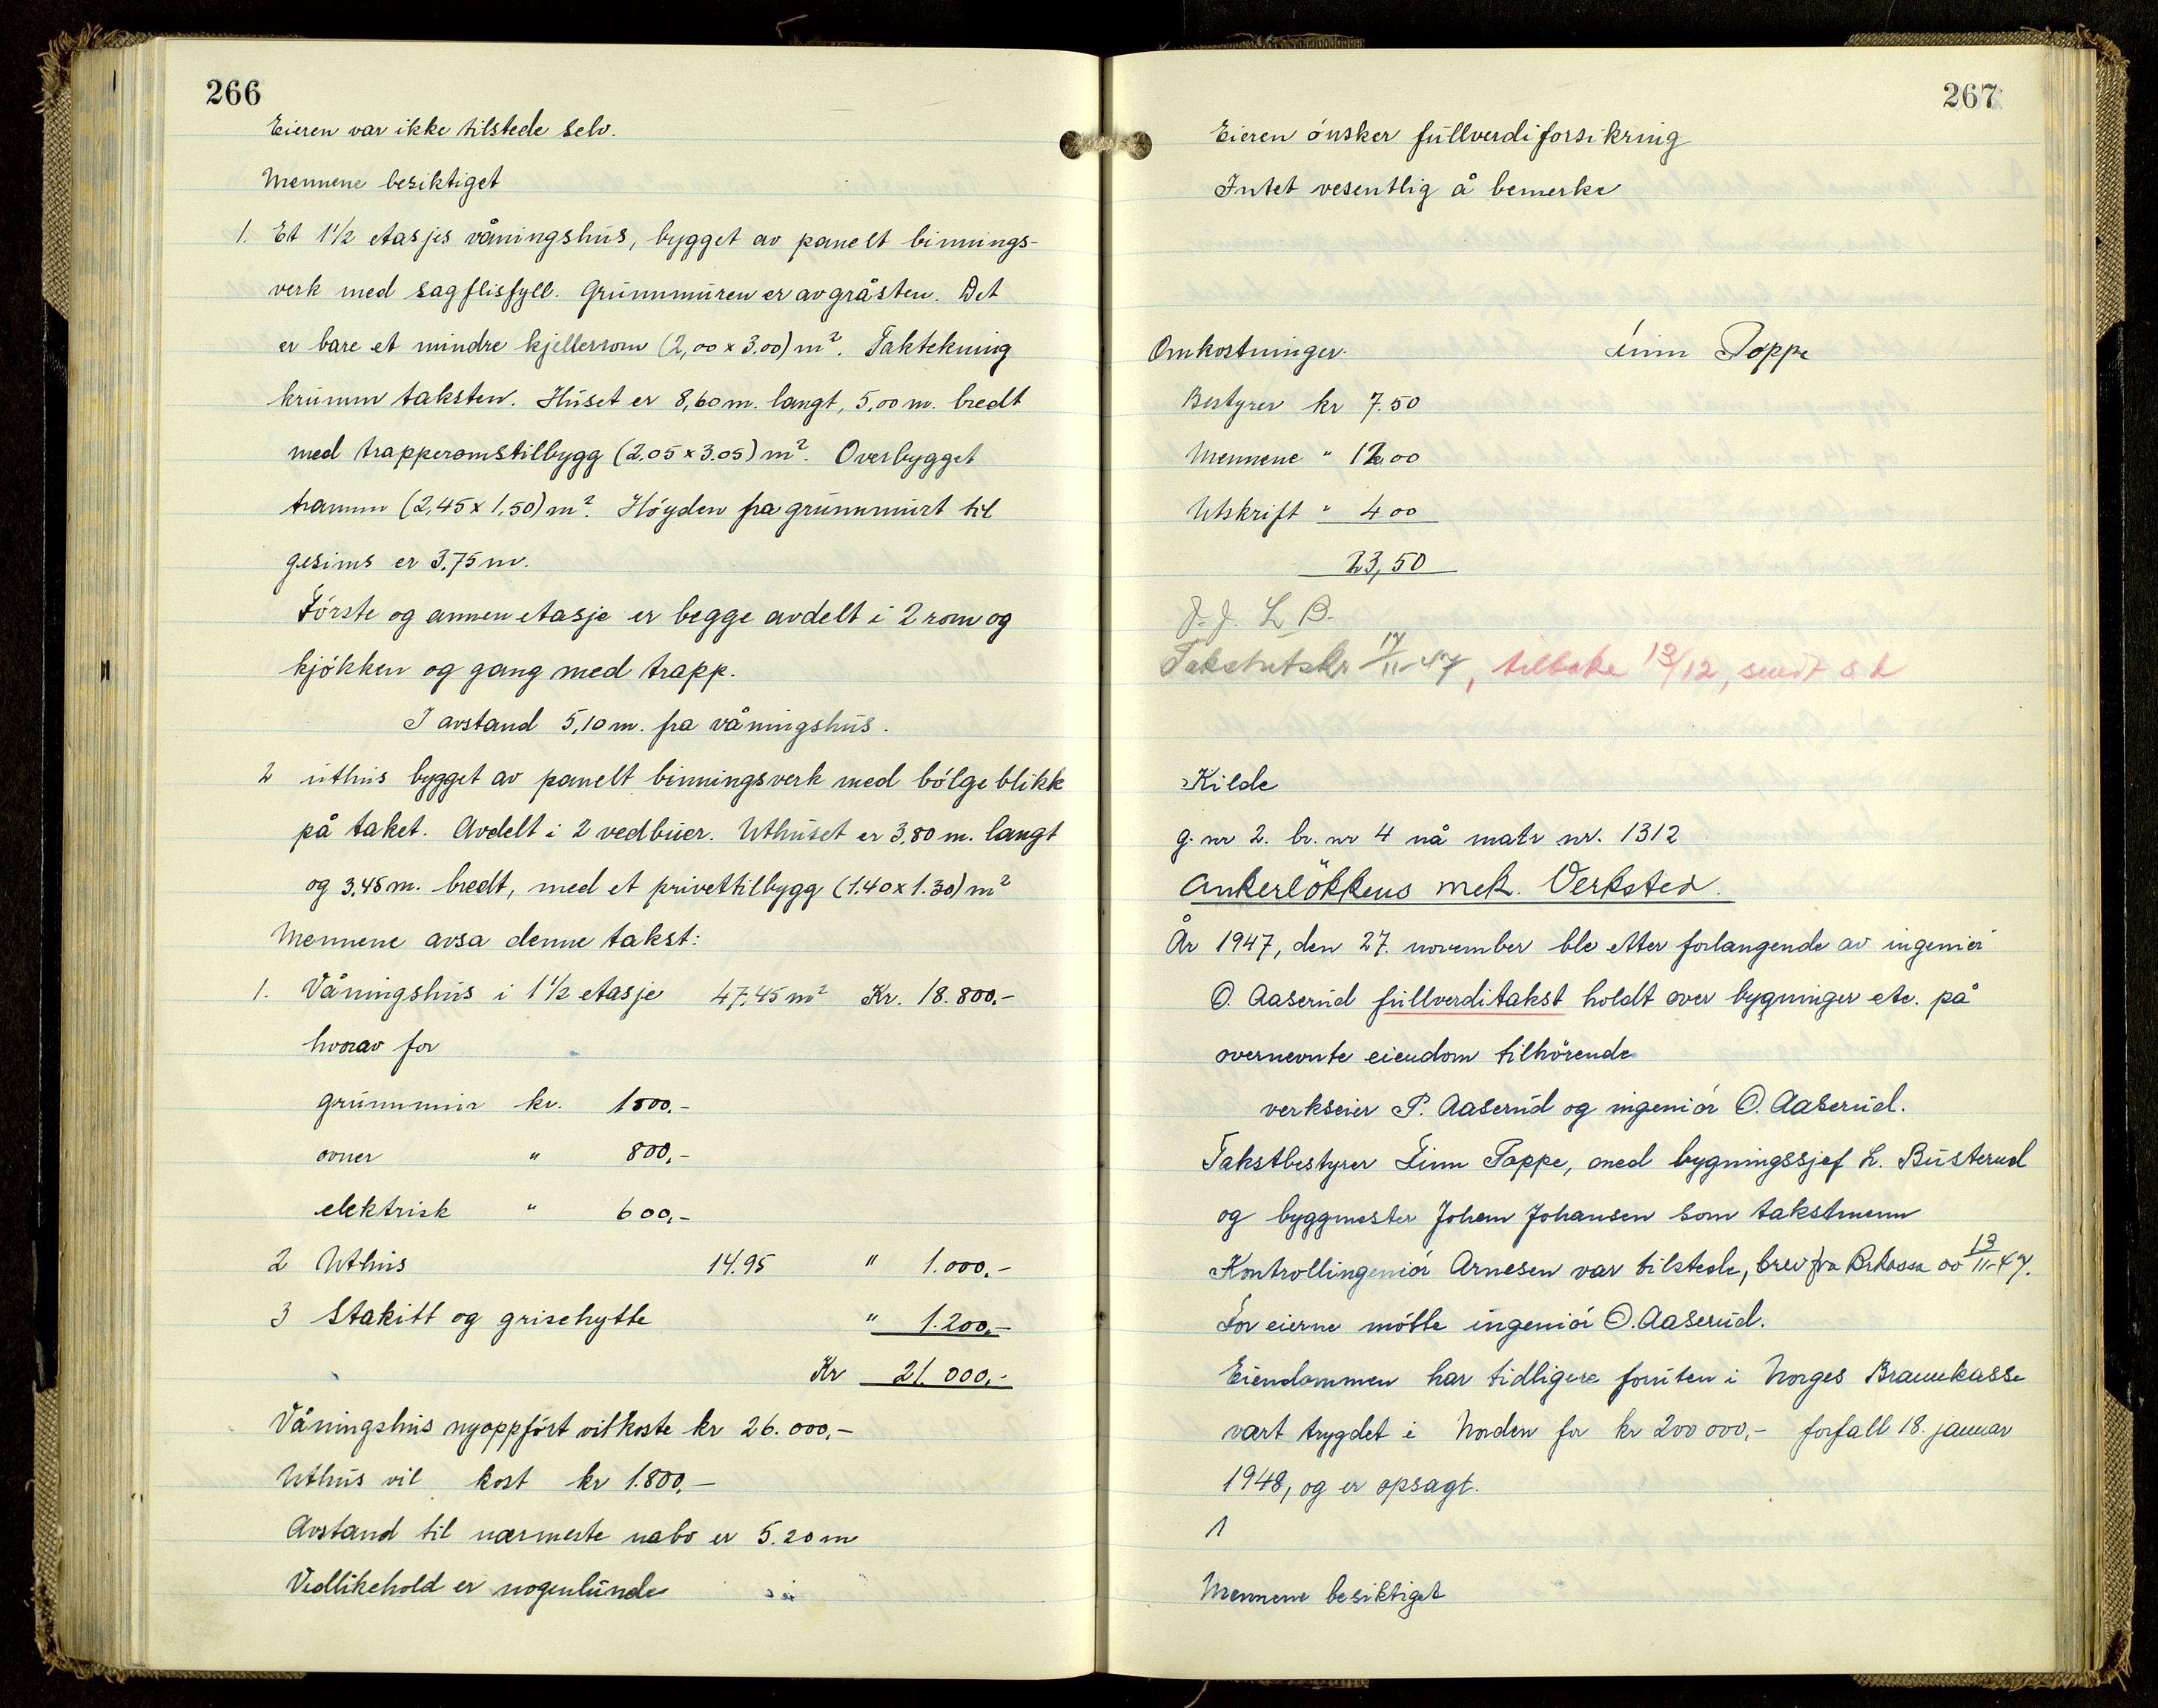 266
Eieren var ikke tilstede selv.
Mennene besiktiget
1. Et 1 1/2 etasjes våningshus, bygget av panelt binnings-
verk med sagflisfyll. Grunnmuren er av gråsten. Det
er bare et mindre kjellerrom (2,00 x 3.00) m². Taktekning
krumm taksten. Huset er 8,60 m. langt, 5,00 m. bredt
med trapperomstilbygg (2.05 x 3.05) m². Overbygget
tramm (2,45 x 1,50) m². Höyden fra grunnmurt til
gesims er 3,75 m.
Förste og annen etasje er begge avdelt i 2 rom og
kjökken og gang med trapp.
I avstand 5,10 m. fra våningshus.
2 uthus bygget av panelt binningsverk med bölgeblikk
på taket. Avdelt i 2 vedbuer. Uthuset er 3,80 m. langt
og 3,45 m. bredt, med et privettilbygg (1.40 x 1.30) m²
Mennene avsa denne takst:
1. Våningshus i 1 1/2 etasje 47,45 m² Kr. 18.800,-
hvorav for
grunnmur kr. 1500,-
ovner " 800,-
elektrisk " 600,-
2 Uthus 14.95 " 1.000,-
3 Stakitt og grisehytte " 1.200,-
Kr 21.000,-
Våningshus nyoppfört vil koste kr 26.000,-
Uthus vil kost kr 1.800,-
Avstand til nærmeste nabo er 5.20 m
Vedlikehold er nogenlunde
267
Eieren önsker fullverdiforsikring
Intet vesentlig å bemerke
Omkostninger. Finn Poppe
Bestyrer kr 7.50
Mennene " 12.00
Utskrift " 4.00
23,50
J. J. L. B.
Takstutskr 17/11-47, tilbake 13/12, sendt s.d
Kilde
g. nr 2. br. nr 4 nå matr nr. 1312
Ankerlökkens mek. Verksted.
År 1947, den 27. november ble etter forlangende av ingeniör
O. Aaserud fullverditakst holdt over bygninger etc. på
overnevnte eiendom tilhörende
verkseier P. Aaserud og ingeniör O. Aaserud.
Takstbestyrer Finn Poppe, med bygningssjef L. Busterud
og byggmester Johan Johansen som takstmenn
Kontrollingeniör Arnesen var tilstede, brev fra Brkassa av 13/11-47.
For eierne mötte ingeniör O. Aaserud.
Eiendommen har tidligere foruten i Norges Brannkasse
vært trygdet i Norden for kr 200 000,- forfall 18. januar
1948, og er opsagt.
1
Mennene besiktiget